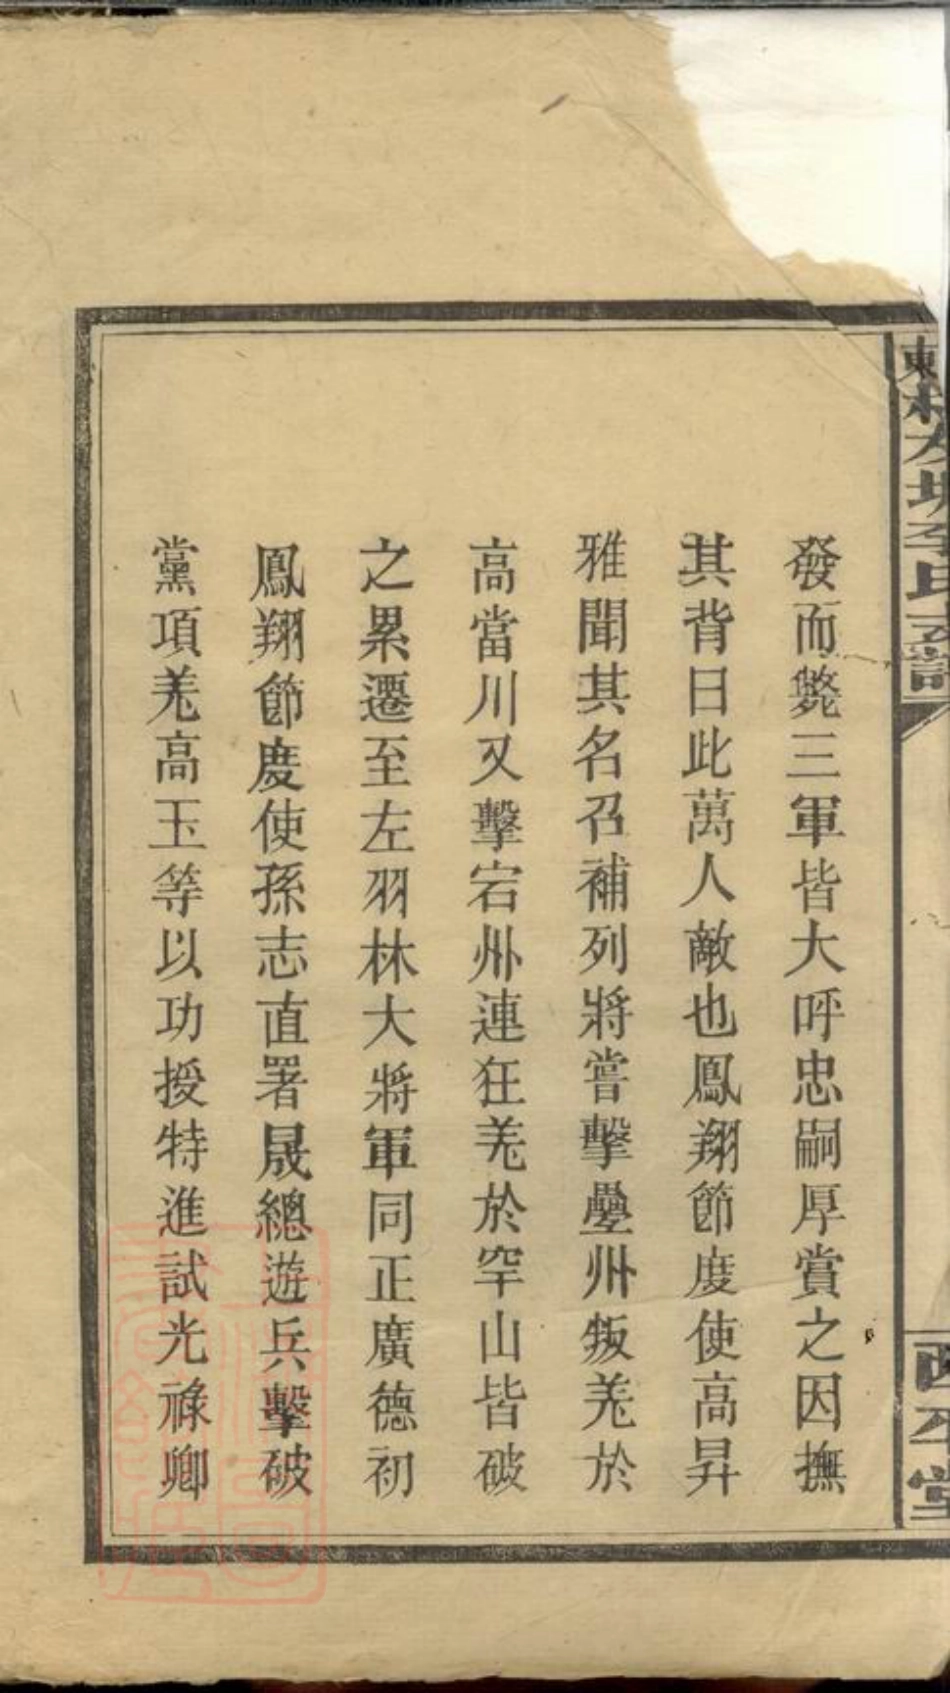 發而斃三軍皆大呼忠嗣厚賞之因撫
其背曰此萬人敵也鳳翔節度使高昇
雅聞其名召補列將嘗擊壘州叛羌於
高當川又擊宕州連狂羌於罕山皆破
之累遷至左羽林大將軍同正廣德初
鳳翔節度使孫志直署晟總遊兵擊破
黨項羌高玉等以功授特進試光祿卿
李氏支譜
西平堂